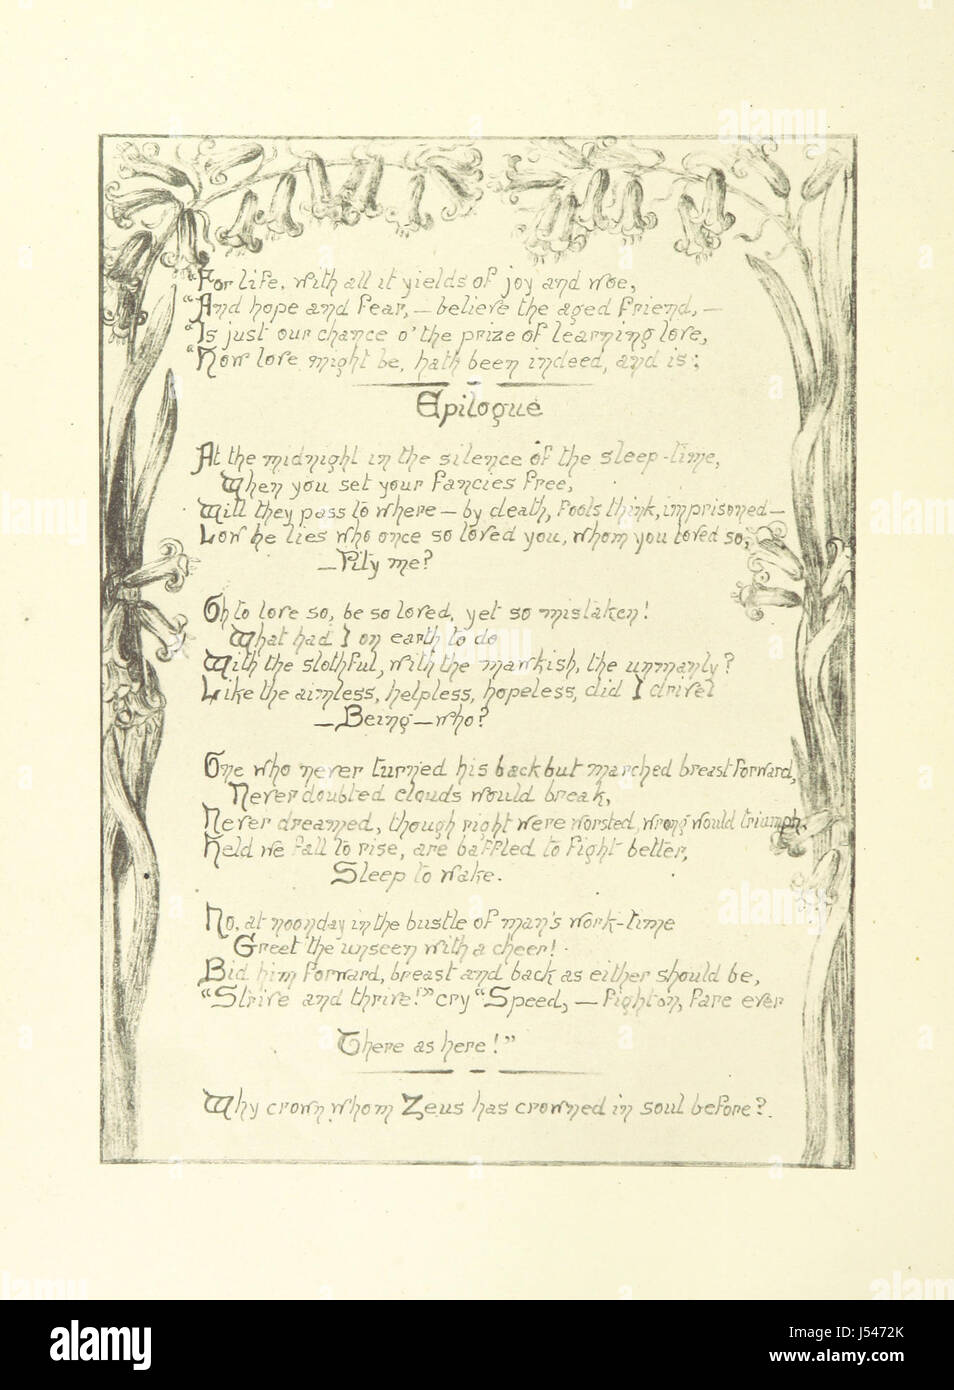 "For life, with all it yields of joy and woe,
"And hope and fear, — believe the aged friend, —
"Is just our chance o' the prize of learning love,
"How love might be, hath been indeed, and is;
Epilogue
At the midnight in the silence of the sleep-time,
When you set your fancies free,
Will they pass to where — by death, fools think, imprisoned —
Low he lies who once so loved you, whom you loved so,
— Pity me?
Oh to love so, be so loved, yet so mistaken!
What had I on earth to do
With the slothful, with the mawkish, the unmanly?
Like the aimless, helpless, hopeless, did I drivel
— Being — who?
One who never turned his back but marched breast forward,
Never doubted clouds would break,
Never dreamed, though right were worsted, wrong would triumph,
Held we fall to rise, are baffled to fight better,
Sleep to wake.
No, at noonday in the bustle of man's work-time
Greet the unseen with a cheer!
Bid him forward, breast and back as either should be,
"Strive and thrive!" cry "Speed, — fight on, fare ever
There as here!"
Why crown whom Zeus has crowned in soul before?
alamy
Image ID: J5472K
www.alamy.com